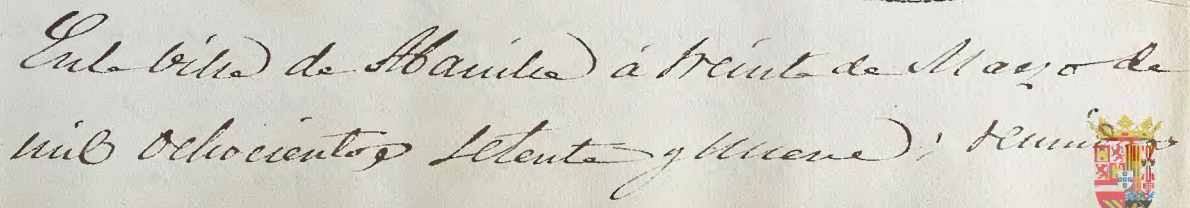 En la villa de Abanilla á treinta de Marzo de
mil ochocientos setenta y nueve; reunidos